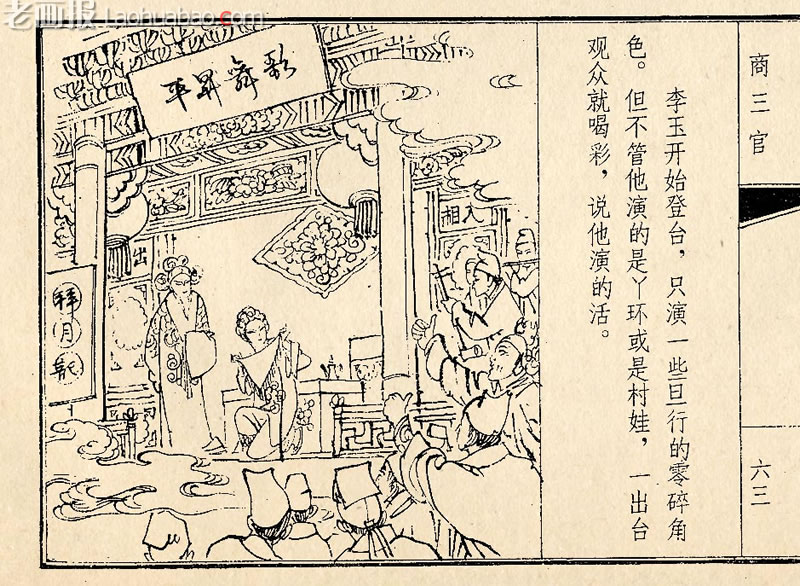 老画报 Laohuabao.com
商三官
李玉开始登台，只演一些旦行的零碎角
色。但不管他演的是丫环或是村娃，一出台
观众就喝彩，说他演的活。
六三
歌舞昇平
入相
出
拜月